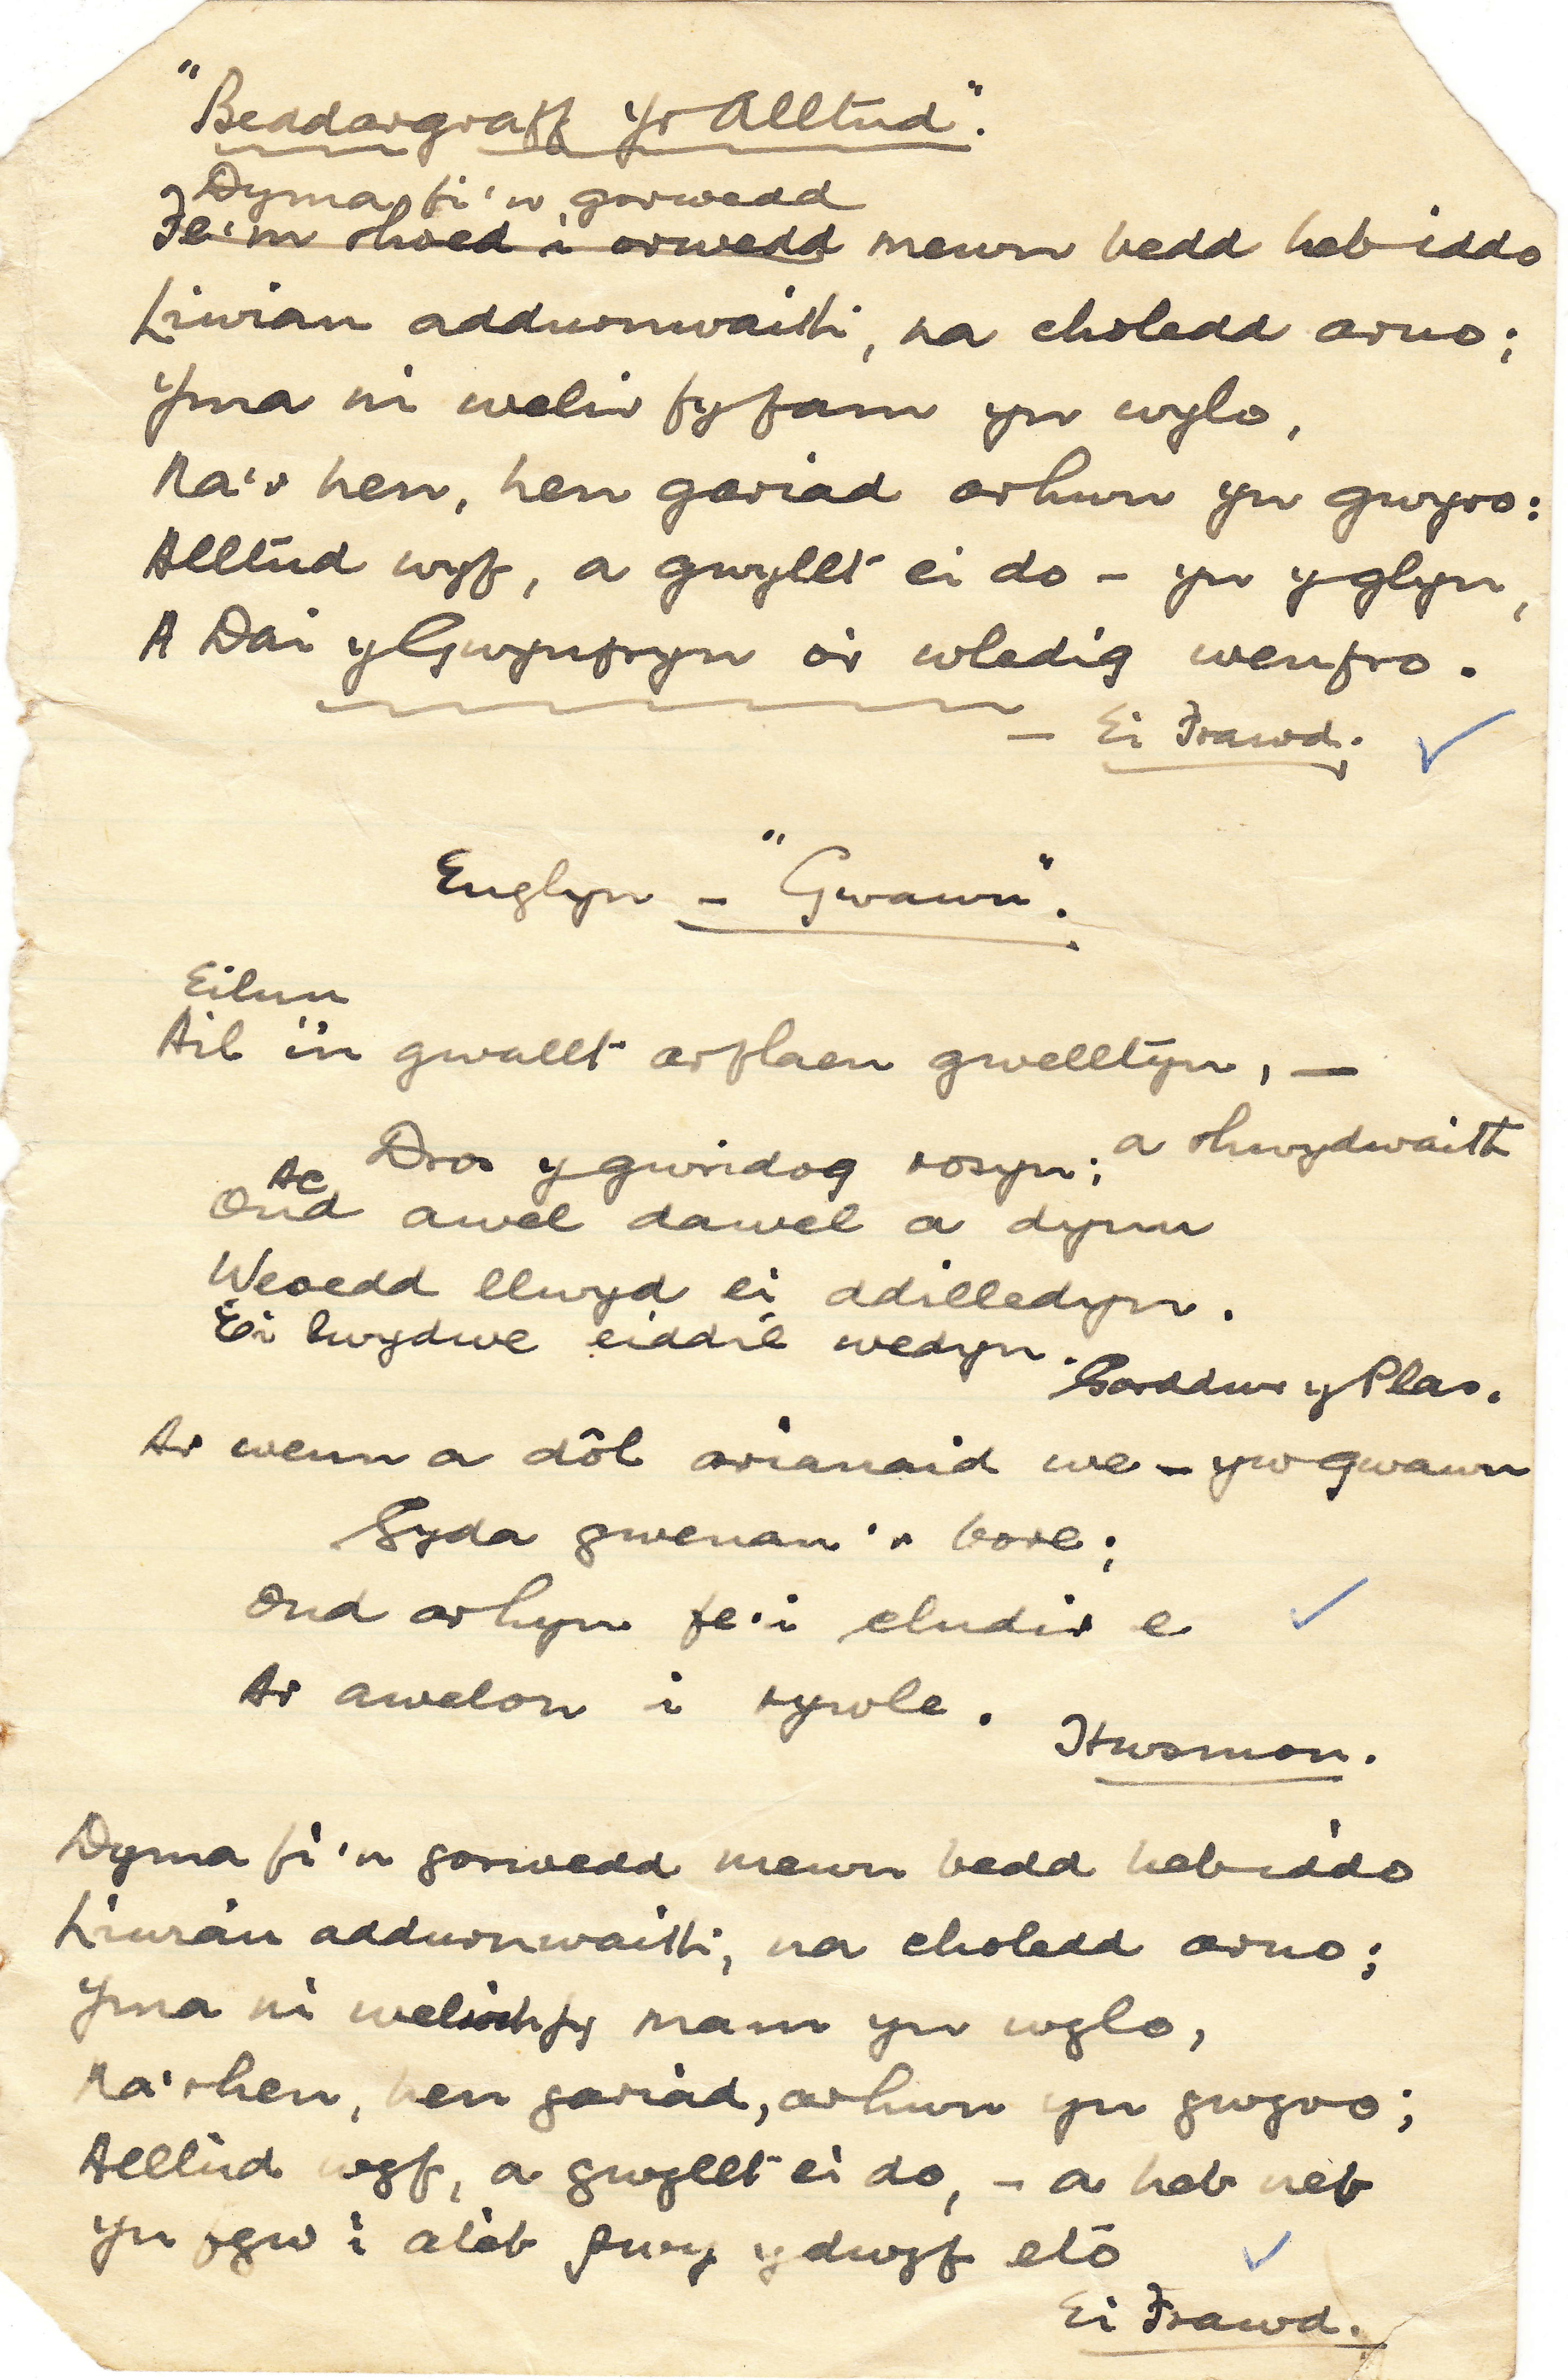 "Beddargraff Yr Alltud".
Dyma fi'n gorwedd
Fe'm rhoed i orwedd mewn bedd heb iddo
Liwian addurnwaith, na choledd arno;
Yma ni welir fy fam yn wylo,
Na'r hen, hen gariad arhwn yn gwyro:
Alltud wyf, a gwyllt ei do – yn y glyn,
A Dai y Gwynfryn o'i wledig wenfro.
– Ei Frawd.
Englyn – "Gwawn".
Eilun
Ail i'n gwallt arflaen gwelltyn, —
a rhwydwaith
Dros y gwridog rosyn;
Ac
Ond awel dawel a dynn
Weoedd llwyd ei ddilledyn.
Ei lwydwe eiddil wedyn.
Gorddwr y Plas.
Ar wenn a dôl arianaid we – yw gwawn
Gyda gwenau'r bore;
Ond arhyn fe'i cludir e
Ar awelon i rywle.
Hwsmon.
Dyma fi'n gorwedd mewn bedd heb iddo
Liwian addurnwaith, na choledd arno;
Yma ni welwch fy mam yn wylo,
Na'r hen, hen gariad, arhwn yn gwyro;
Alltud wyf, a gwyllt ei do, – a heb neb
Yn fyw i ateb pwy ydwyf eto
Ei Frawd.